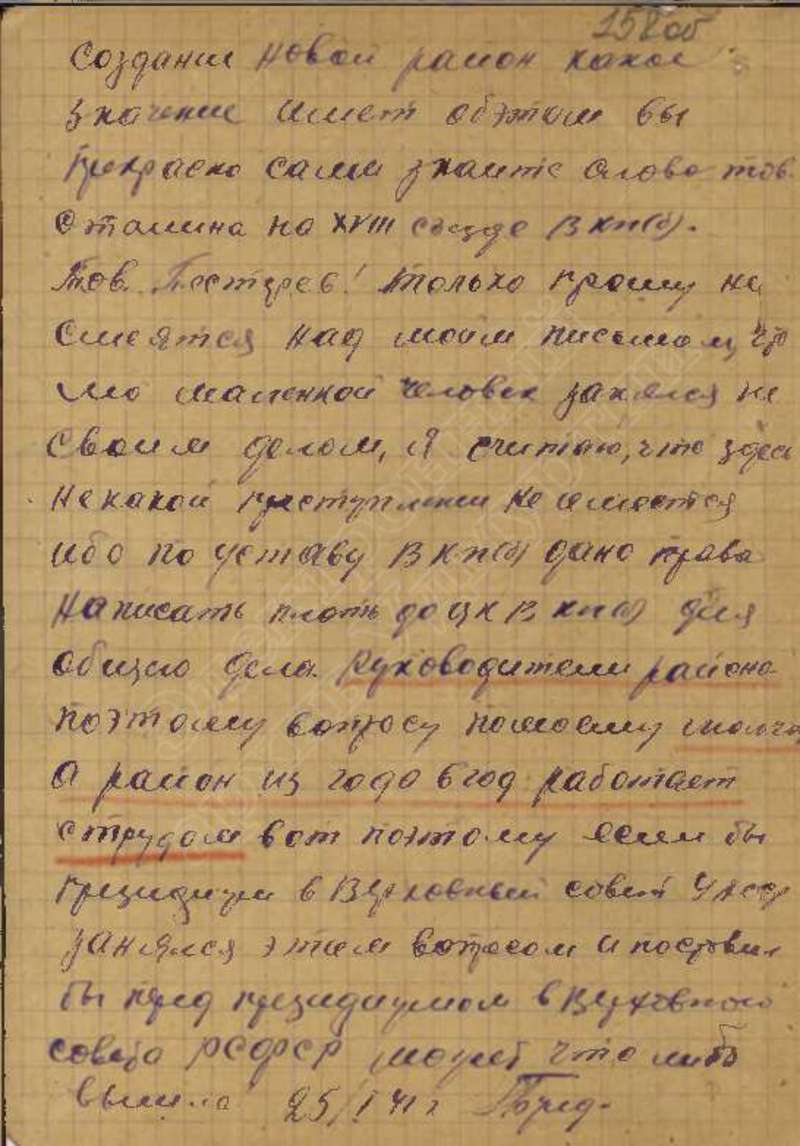 158об
создании новой район какое
значение имет обэтом вы
прекрасно сами знаите слово тов.
Сталина на XVIII съезде ВКП(б).
Тов. Пестерев! только прошу не
смеятся над моим письмом, что
мо маленкой человек занялся не
своим делом, я считаю, что здес
некакой преступлении не имеется
ибо по уставу ВКП(б) дано права
написать плоть до ЦК ВКП(б) для
общею дела. Руководители района
поэтому вопросу помоему молча
а район из года в год работает
с трудом вот поэтому если бы
президиум в Верховный совет УАССР
занялся этим вопросом и поставил
бы перед президиумом в Верховного
совета РСФСР может что либо
вышло 25/I 41 г